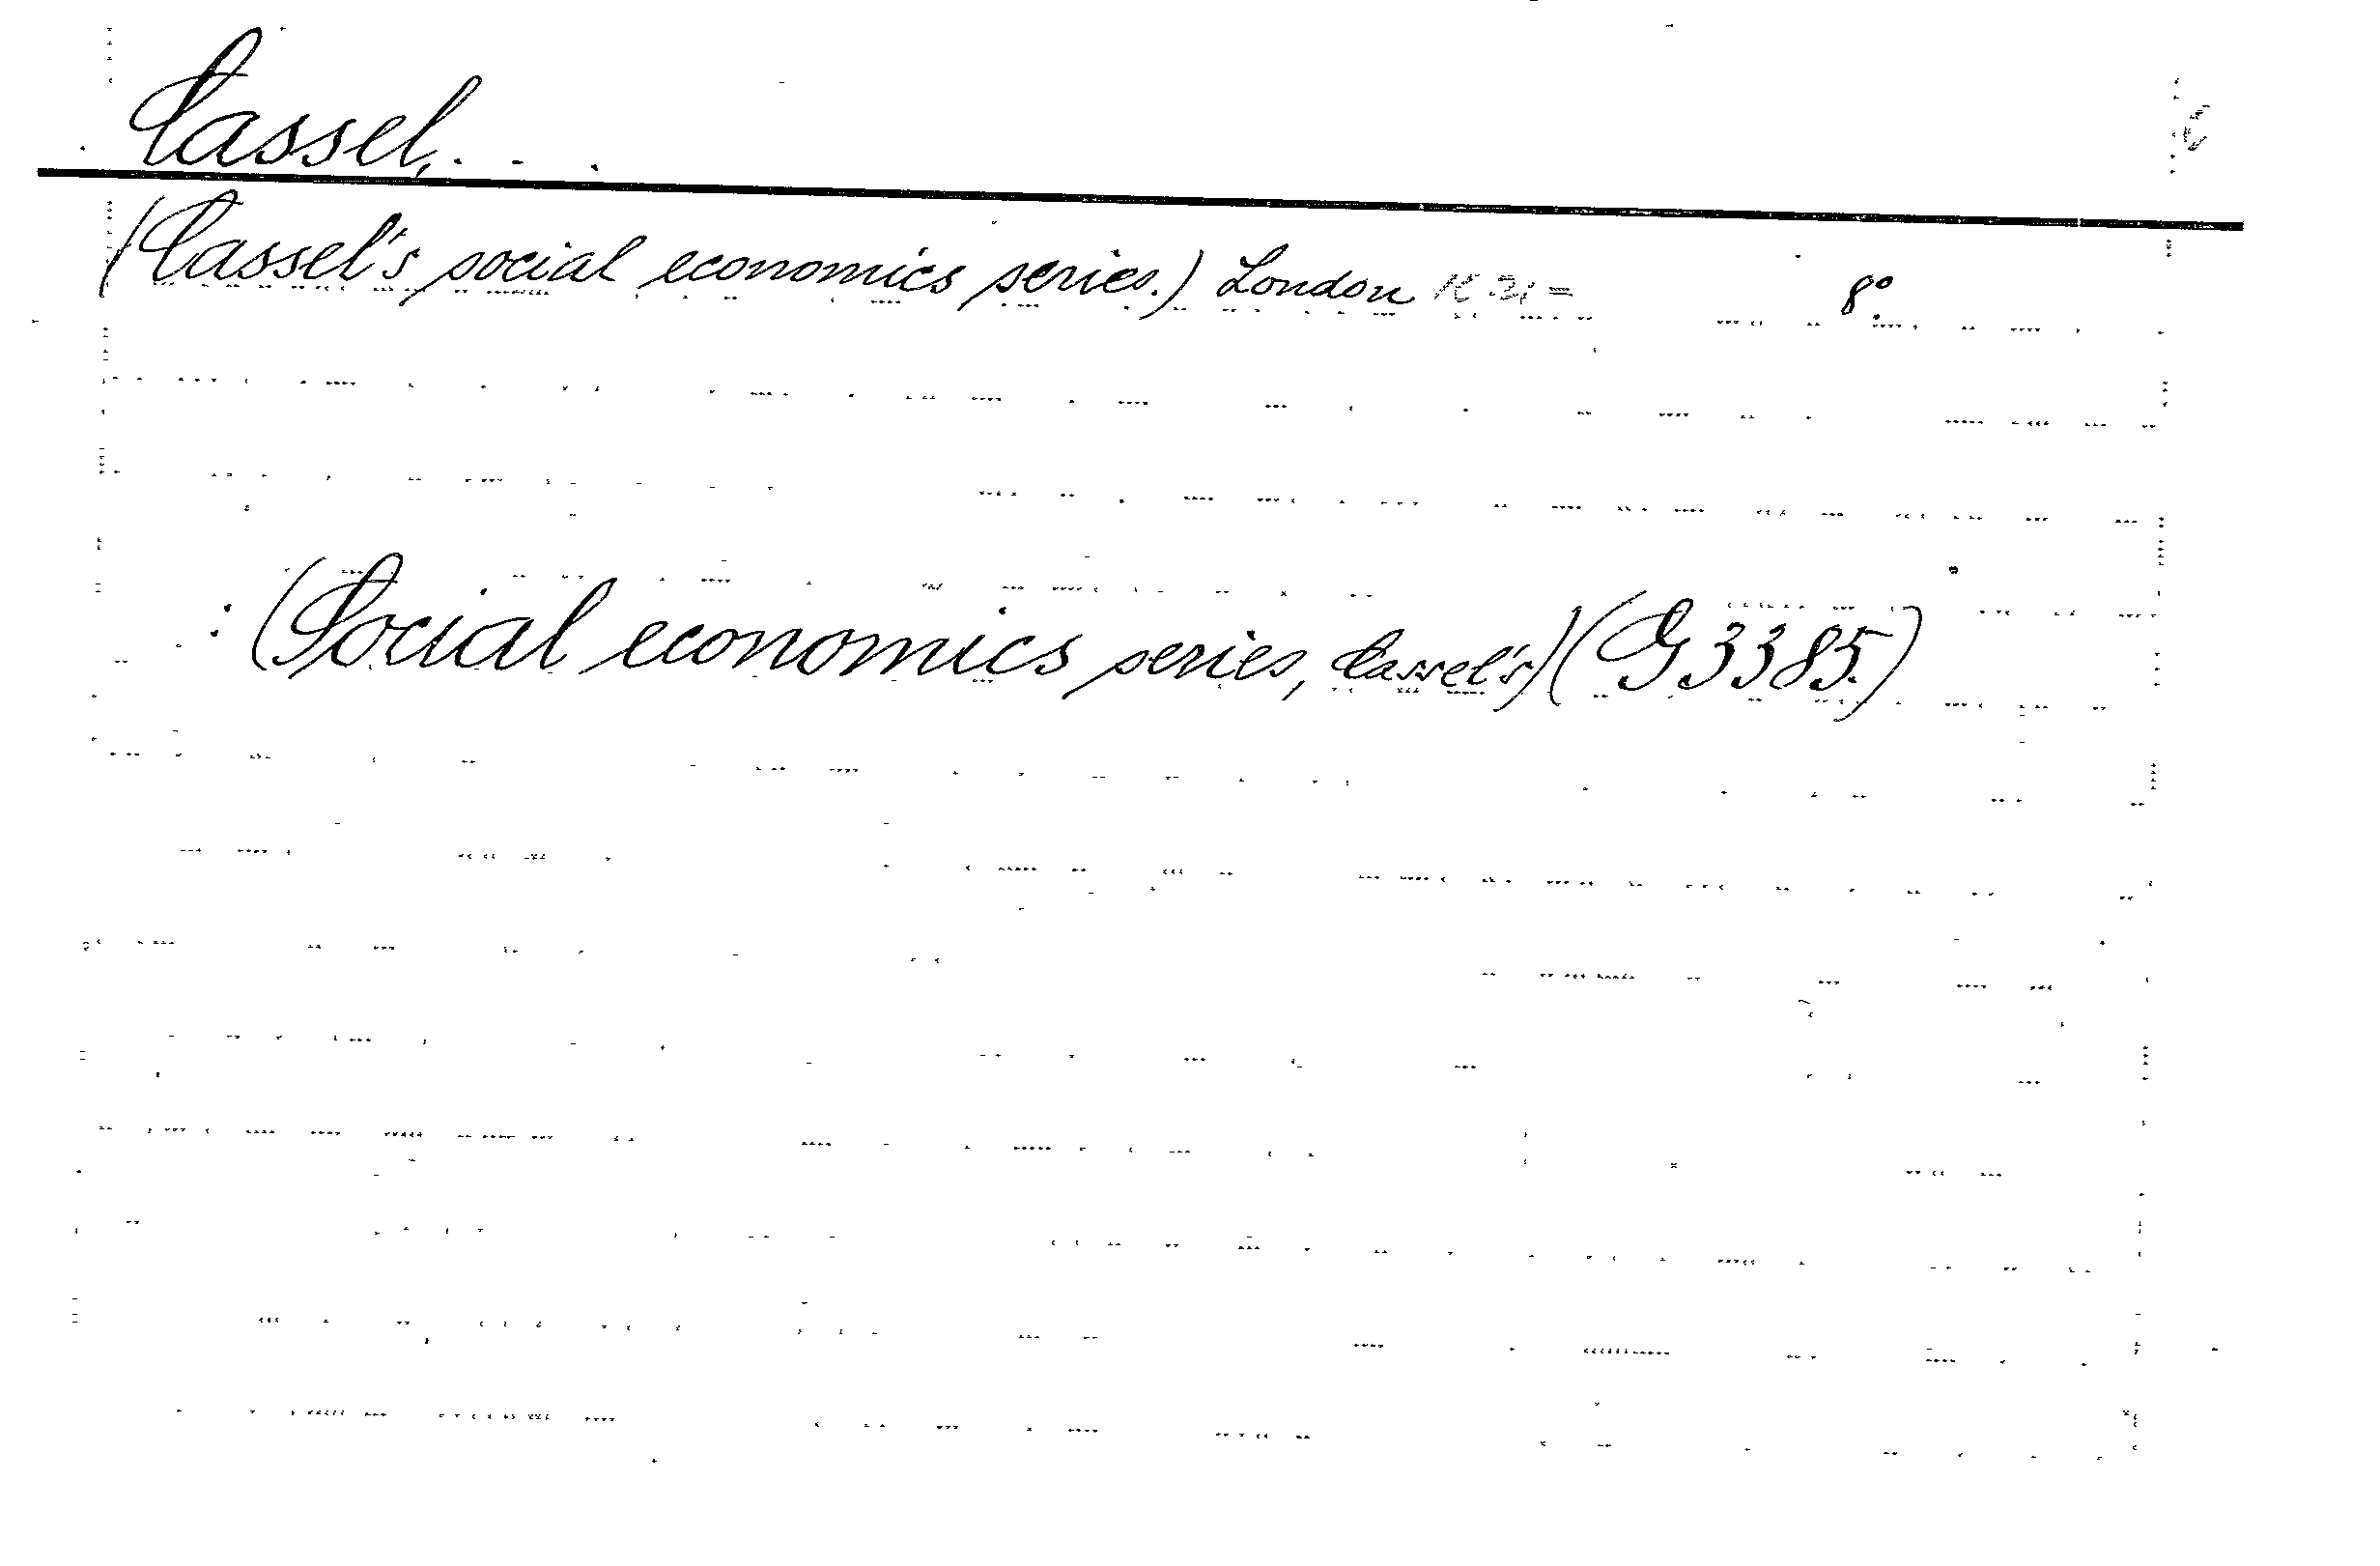 Cassel, . . .
(Cassel's social economics series.) London 8°.
: (Social economics series, Cassel's) (G 3385.)